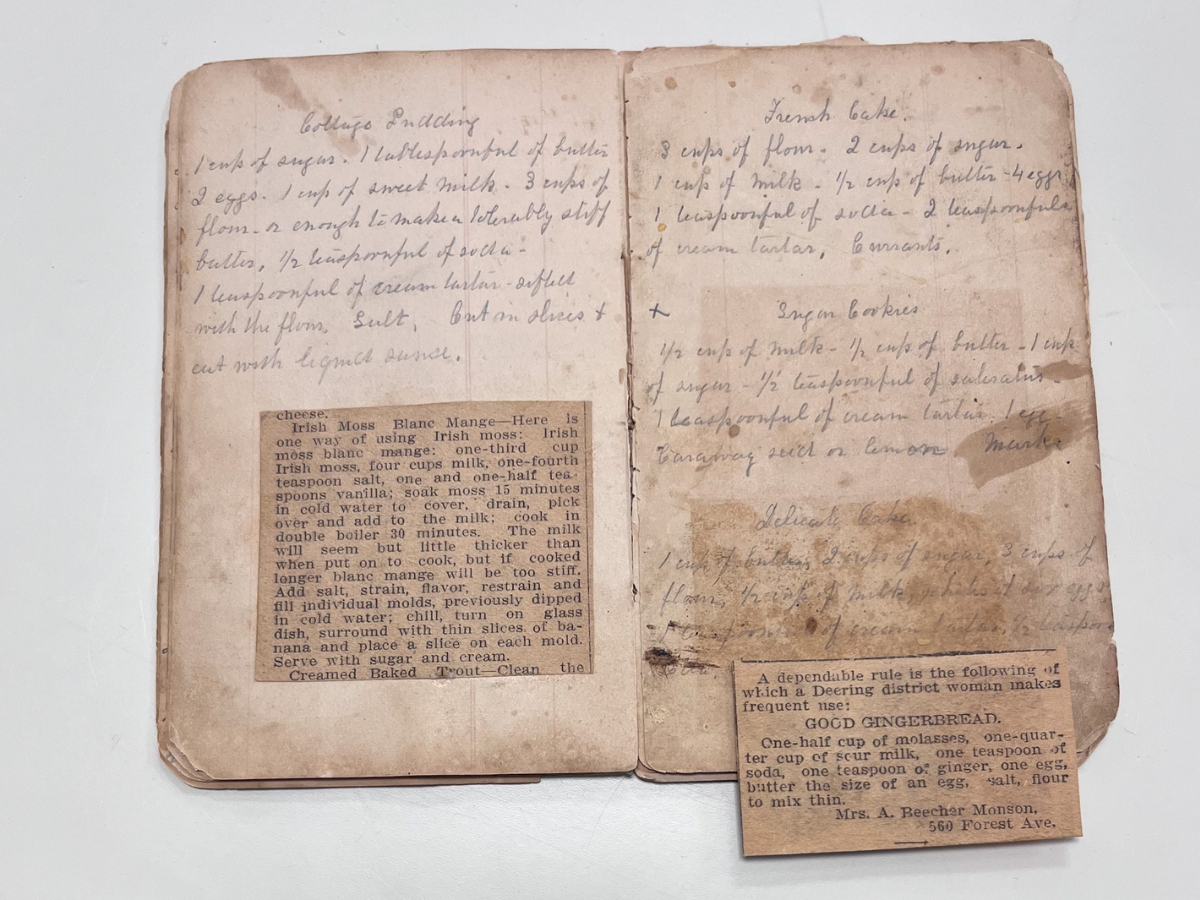 Cottage Pudding
1 cup of sugar. 1 tablespoonful of butter
2 eggs. 1 cup of sweet milk. 3 cups of
flour. or enough to make a tolerably stiff
butter, 1/2 teaspoonful of soda -
1 teaspoonful of cream tartar - sifted
with the flour. Salt. Cut in slices +
eat with liquid sauce.
cheese.
Irish Moss Blanc Mange—Here is
one way of using Irish moss: Irish
moss blanc mange: one-third cup
Irish moss, four cups milk, one-fourth
teaspoon salt, one and one-half tea-
spoons vanilla; soak moss 15 minutes
in cold water to cover, drain, pick
over and add to the milk; cook in
double boiler 30 minutes. The milk
will seem but little thicker than
when put on to cook, but if cooked
longer blanc mange will be too stiff.
Add salt, strain, flavor, restrain and
fill individual molds, previously dipped
in cold water; chill, turn on glass
dish, surround with thin slices of ba-
nana and place a slice on each mold.
Serve with sugar and cream.
Creamed Baked Trout—Clean the
French Cake.
3 cups of flour. 2 cups of sugar.
1 cup of Milk - 1/2 cup of butter - 4 eggs
1 teaspoonful of soda - 2 teaspoonfuls
of cream tartar. Currants.
+ Sugar Cookies
1/2 cup of Milk - 1/2 cup of butter - 1 cup
of sugar - 1/2 teaspoonful of saleratus -
1 teaspoonful of cream tartar. 1 egg -
Caraway seed or lemon Mark
Delicate Cake.
1 cup of butter, 2 cups of sugar, 3 cups of
flour, 1/2 cup of Milk, eggs
1 teaspoonful of cream tartar, 1/2 teaspoon
soda.
A dependable rule is the following of
which a Deering district woman makes
frequent use:
GOOD GINGERBREAD.
One-half cup of molasses, one-quar-
ter cup of sour milk, one teaspoon of
soda, one teaspoon of ginger, one egg,
butter the size of an egg, salt, flour
to mix thin.
Mrs. A. Beecher Monson.
560 Forest Ave.